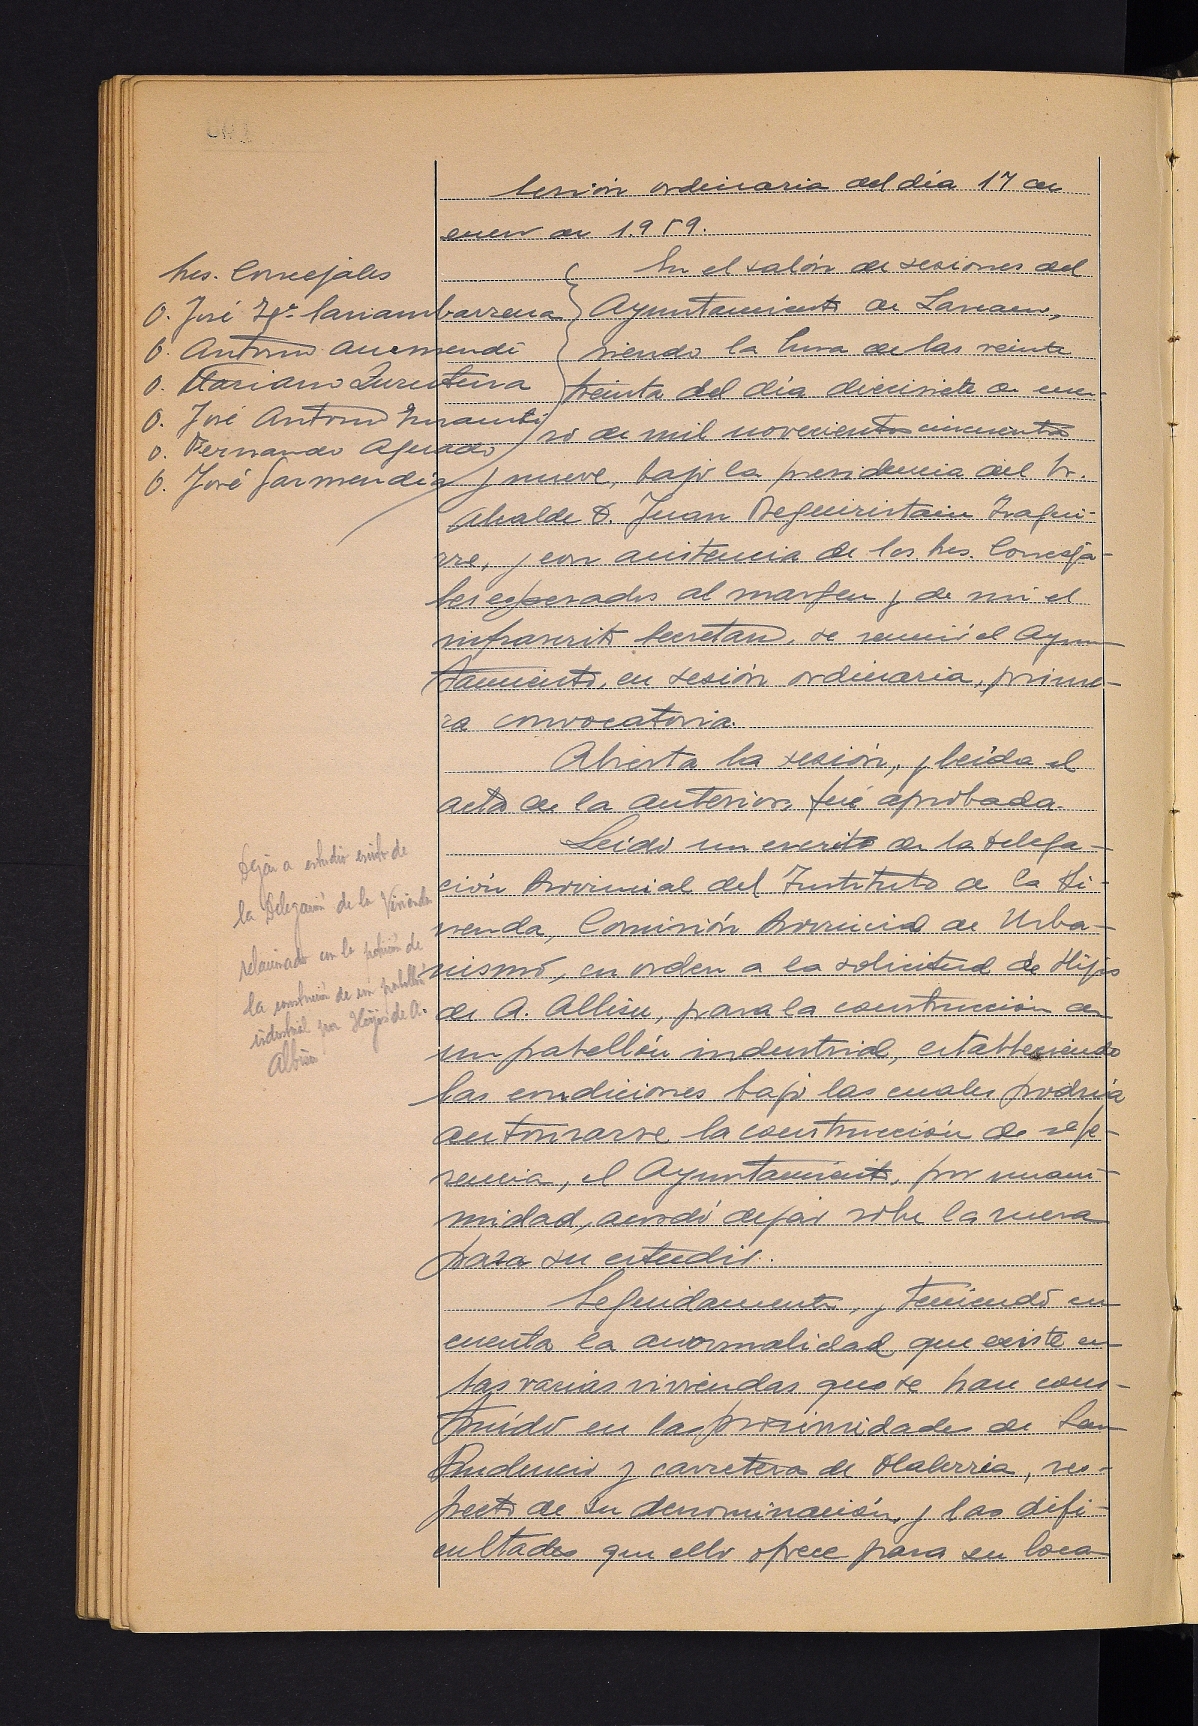 Sesión ordinaria del día 17 de
enero de 1.959.
Sres. Concejales
D. José Mª. Cariambarrena
D. Antonio Auzmendi
D. Mariano Zurutuza
D. José Antonio
D. Fernando Aguado
D. José Garmendia
En el salón de sesiones del
Ayuntamiento de Lazcano,
siendo la hora de las veinte
treinta del día diecisiete de ene-
ro de mil novecientos cincuenta
y nueve, bajo la presidencia del Sr.
Alcalde D. Juan Beguiristain Izagui-
rre, y con asistencia de los Sres. Conceja-
les expresados al margen y de mi el
infrascrito Secretario, se reunió el Ayun
tamiento, en sesión ordinaria, prime-
ra convocatoria.
Abierta la sesión, y leída el
acta de la anterior, fué aprobada.
Dejar a estudio escrito de
la Delegación de la Vivienda
relacionado con la petición de
la construcción de un pabellón
industrial por Hijos de A.
Albisu
Leído un escrito de la Delega-
ción Provincial del Instituto de la Vi-
vienda, Comisión Provincial de Urba-
nismo, en orden a la solicitud de Hijos
de A. Albisu, para la construcción de
un pabellón industrial, estableciendo
las condiciones bajo las cuales podría
autorizarse la construcción de refe-
rencia, el Ayuntamiento, por unani-
midad, acordó dejar sobre la mesa
para su estudio.
Seguidamente, y teniendo en
cuenta la anormalidad que existe en
las varias viviendas que se han cons-
truído en las proximidades de San
Prudencio y carretera de Olaberria, res-
pecto de su denominación, y las difi-
cultades que ello ofrece para su loca